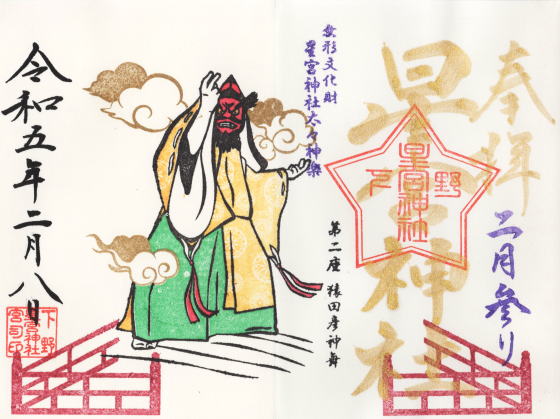 奉拝
二月参り
星宮神社
下野
星宮神社
無形文化財
星宮神社太々神楽
第二座 猿田彦神舞
令和五年二月八日
下野
星宮神社
宮司印